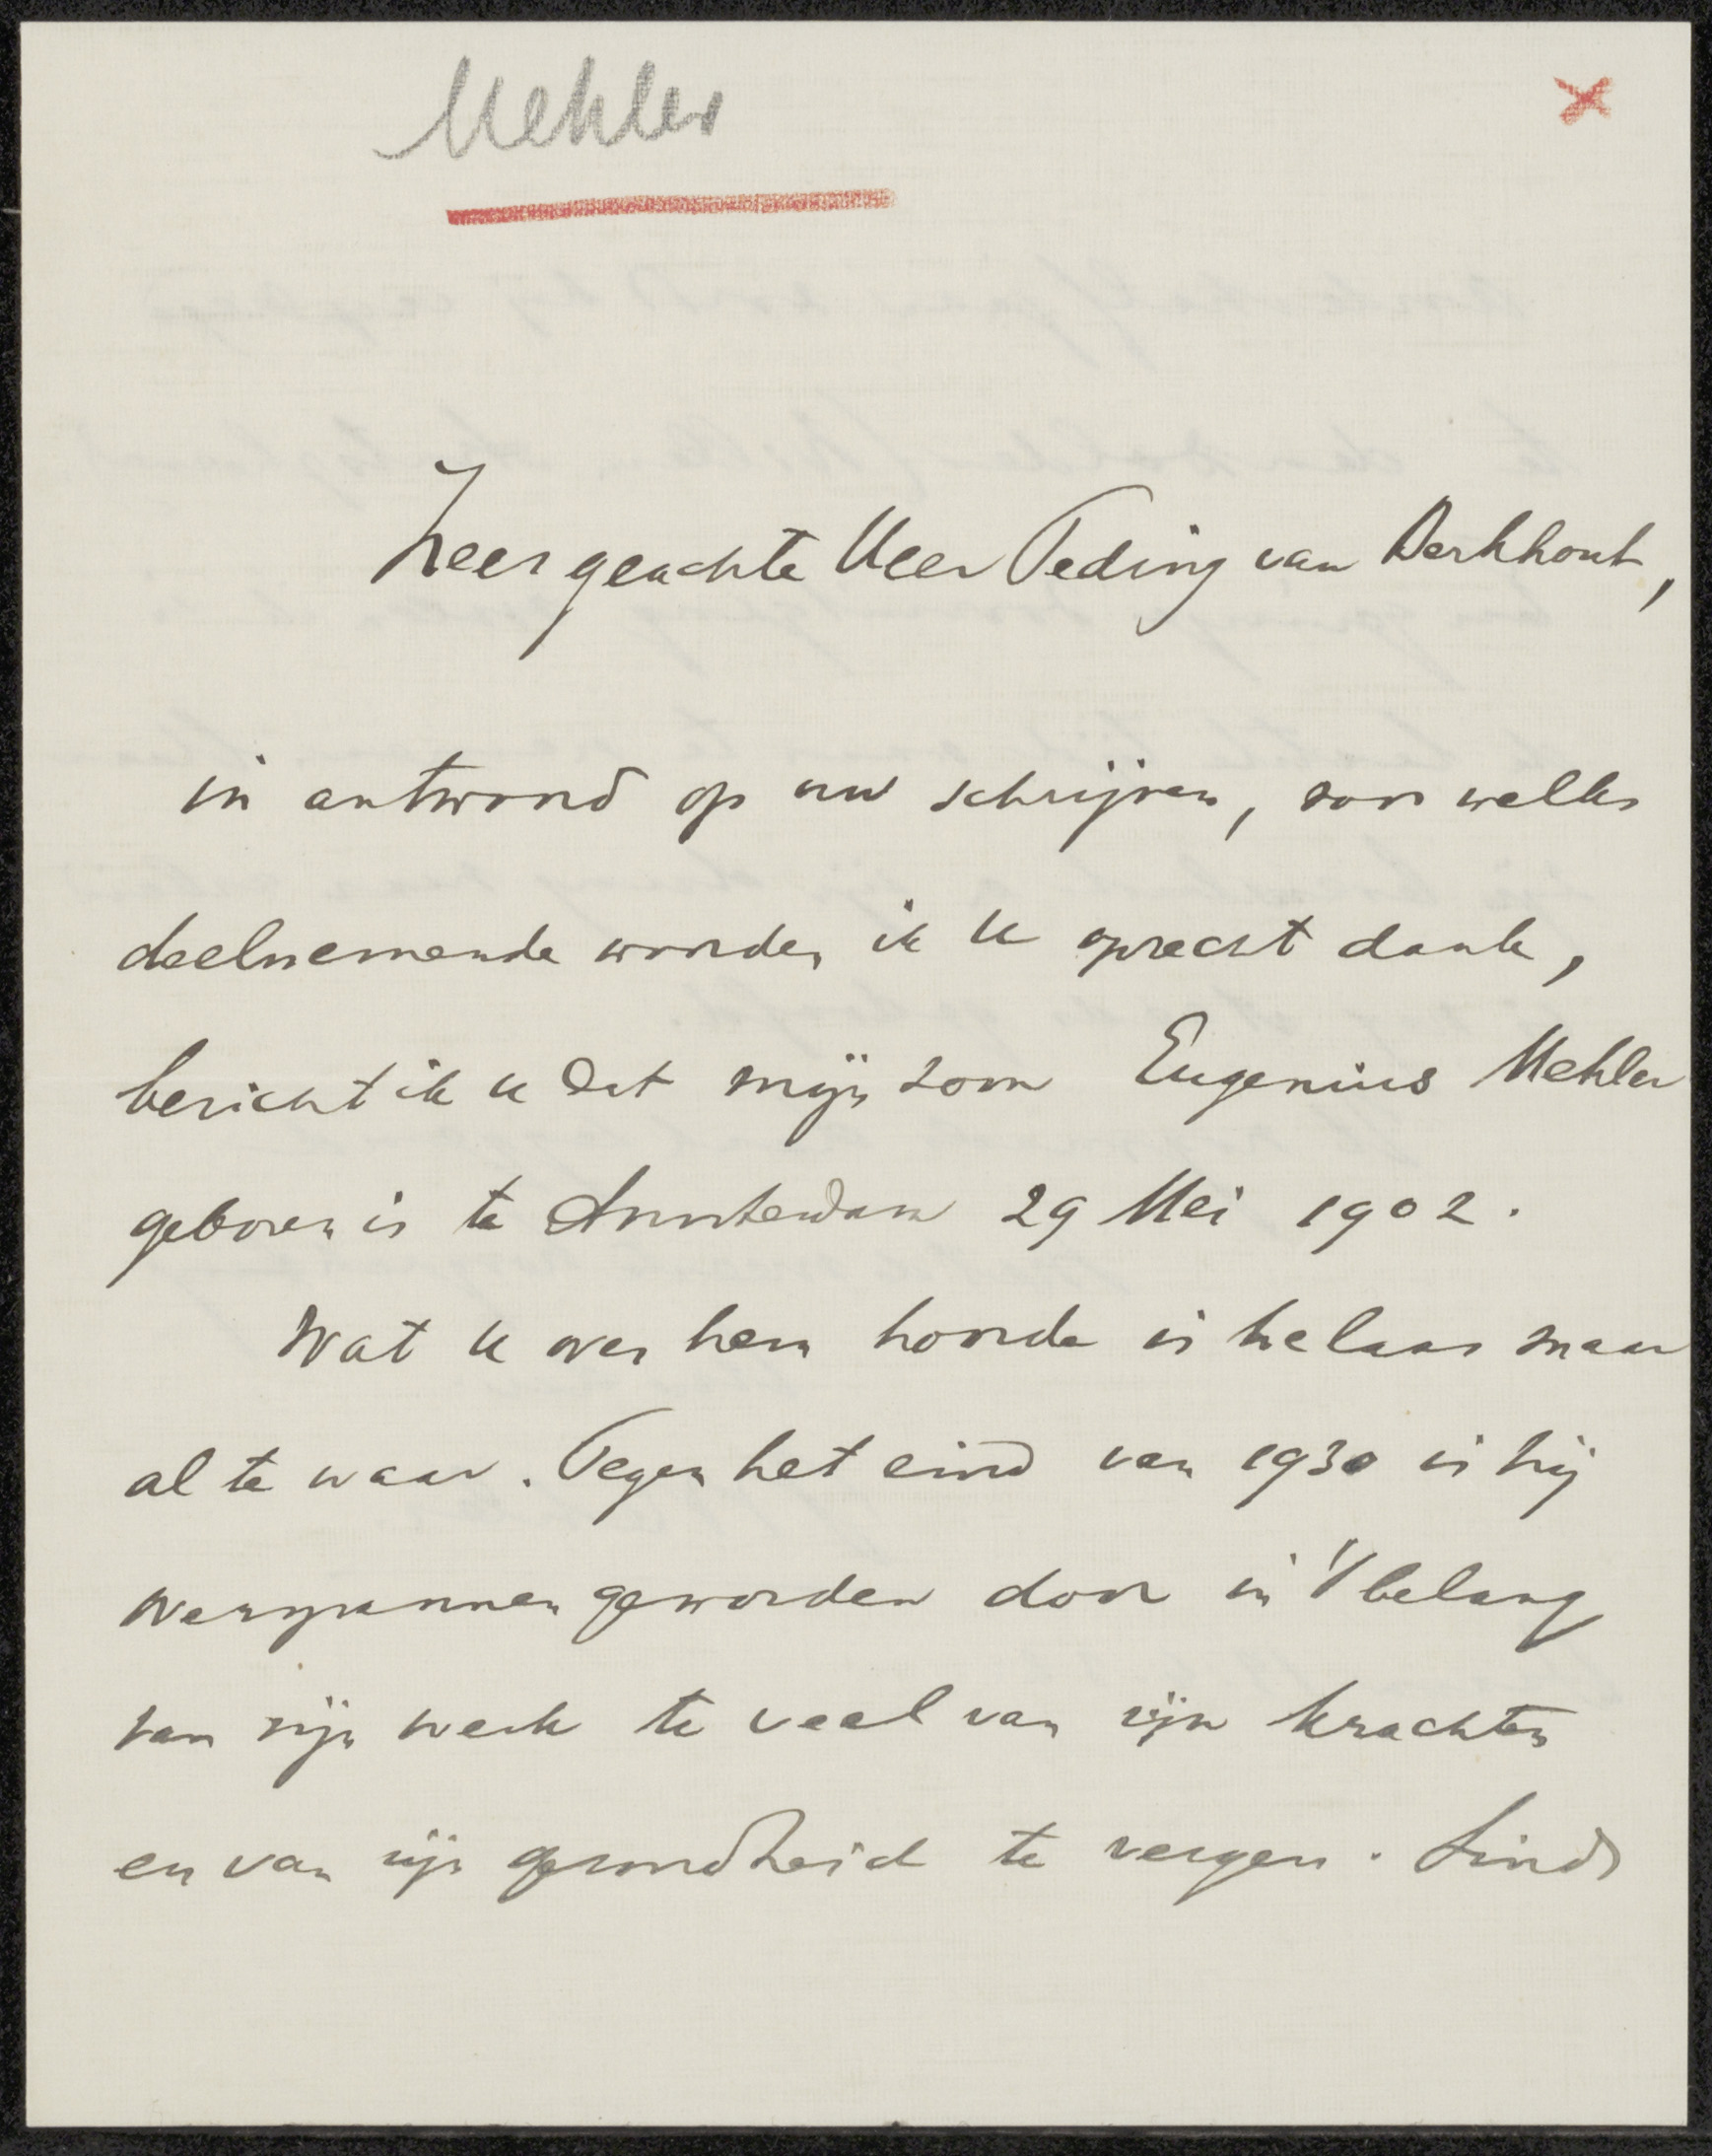 Mehler
Zeer geachte Heer Teding van Berkhout,
in antwoord op uw schrijven, voor welks
deelnemende woorden ik U oprecht dank,
bericht ik u dat mijn zoon Eugenius Mehler
geboren is te Amsterdam 29 Mei 1902.
Wat U over hem hoorde is helaas maar
al te waar. Tegen het eind van 1930 is hij
overspannen geworden door in 't belang
van zijn werk te veel van zijn krachten
en van zijn gezondheid te vergen. Sinds